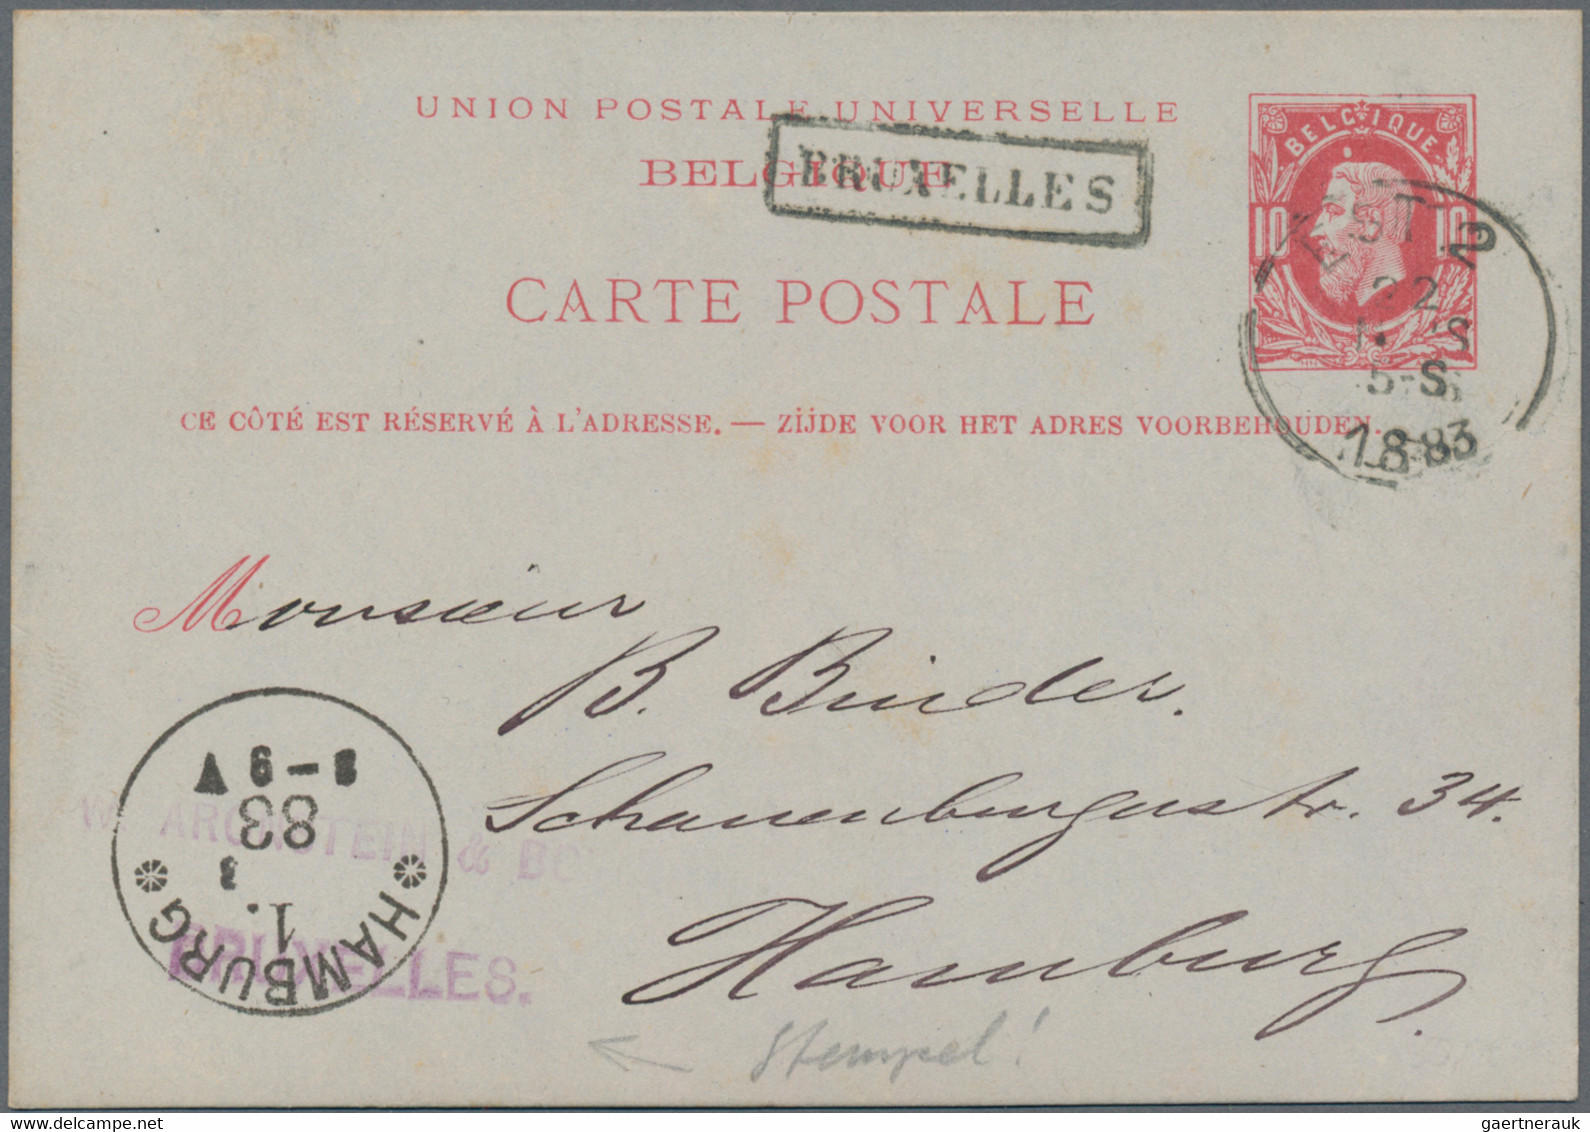 UNION POSTALE UNIVERSELLE
BELGIQUE
BRUXELLES
CARTE POSTALE
BELGIQUE
10 10
EST 2
22
5-S
1883
CE CÔTÉ EST RÉSERVÉ À L'ADRESSE. — ZIJDE VOOR HET ADRES VOORBEHOUDEN.
Monsieur
B. Binder.
Schauenburgerstr. 34.
Hamburg.
HAMBURG
1.
3
83
8-9 V
W. ARONSTEIN &
BRUXELLES.
← Stempel!
gaertnerauk